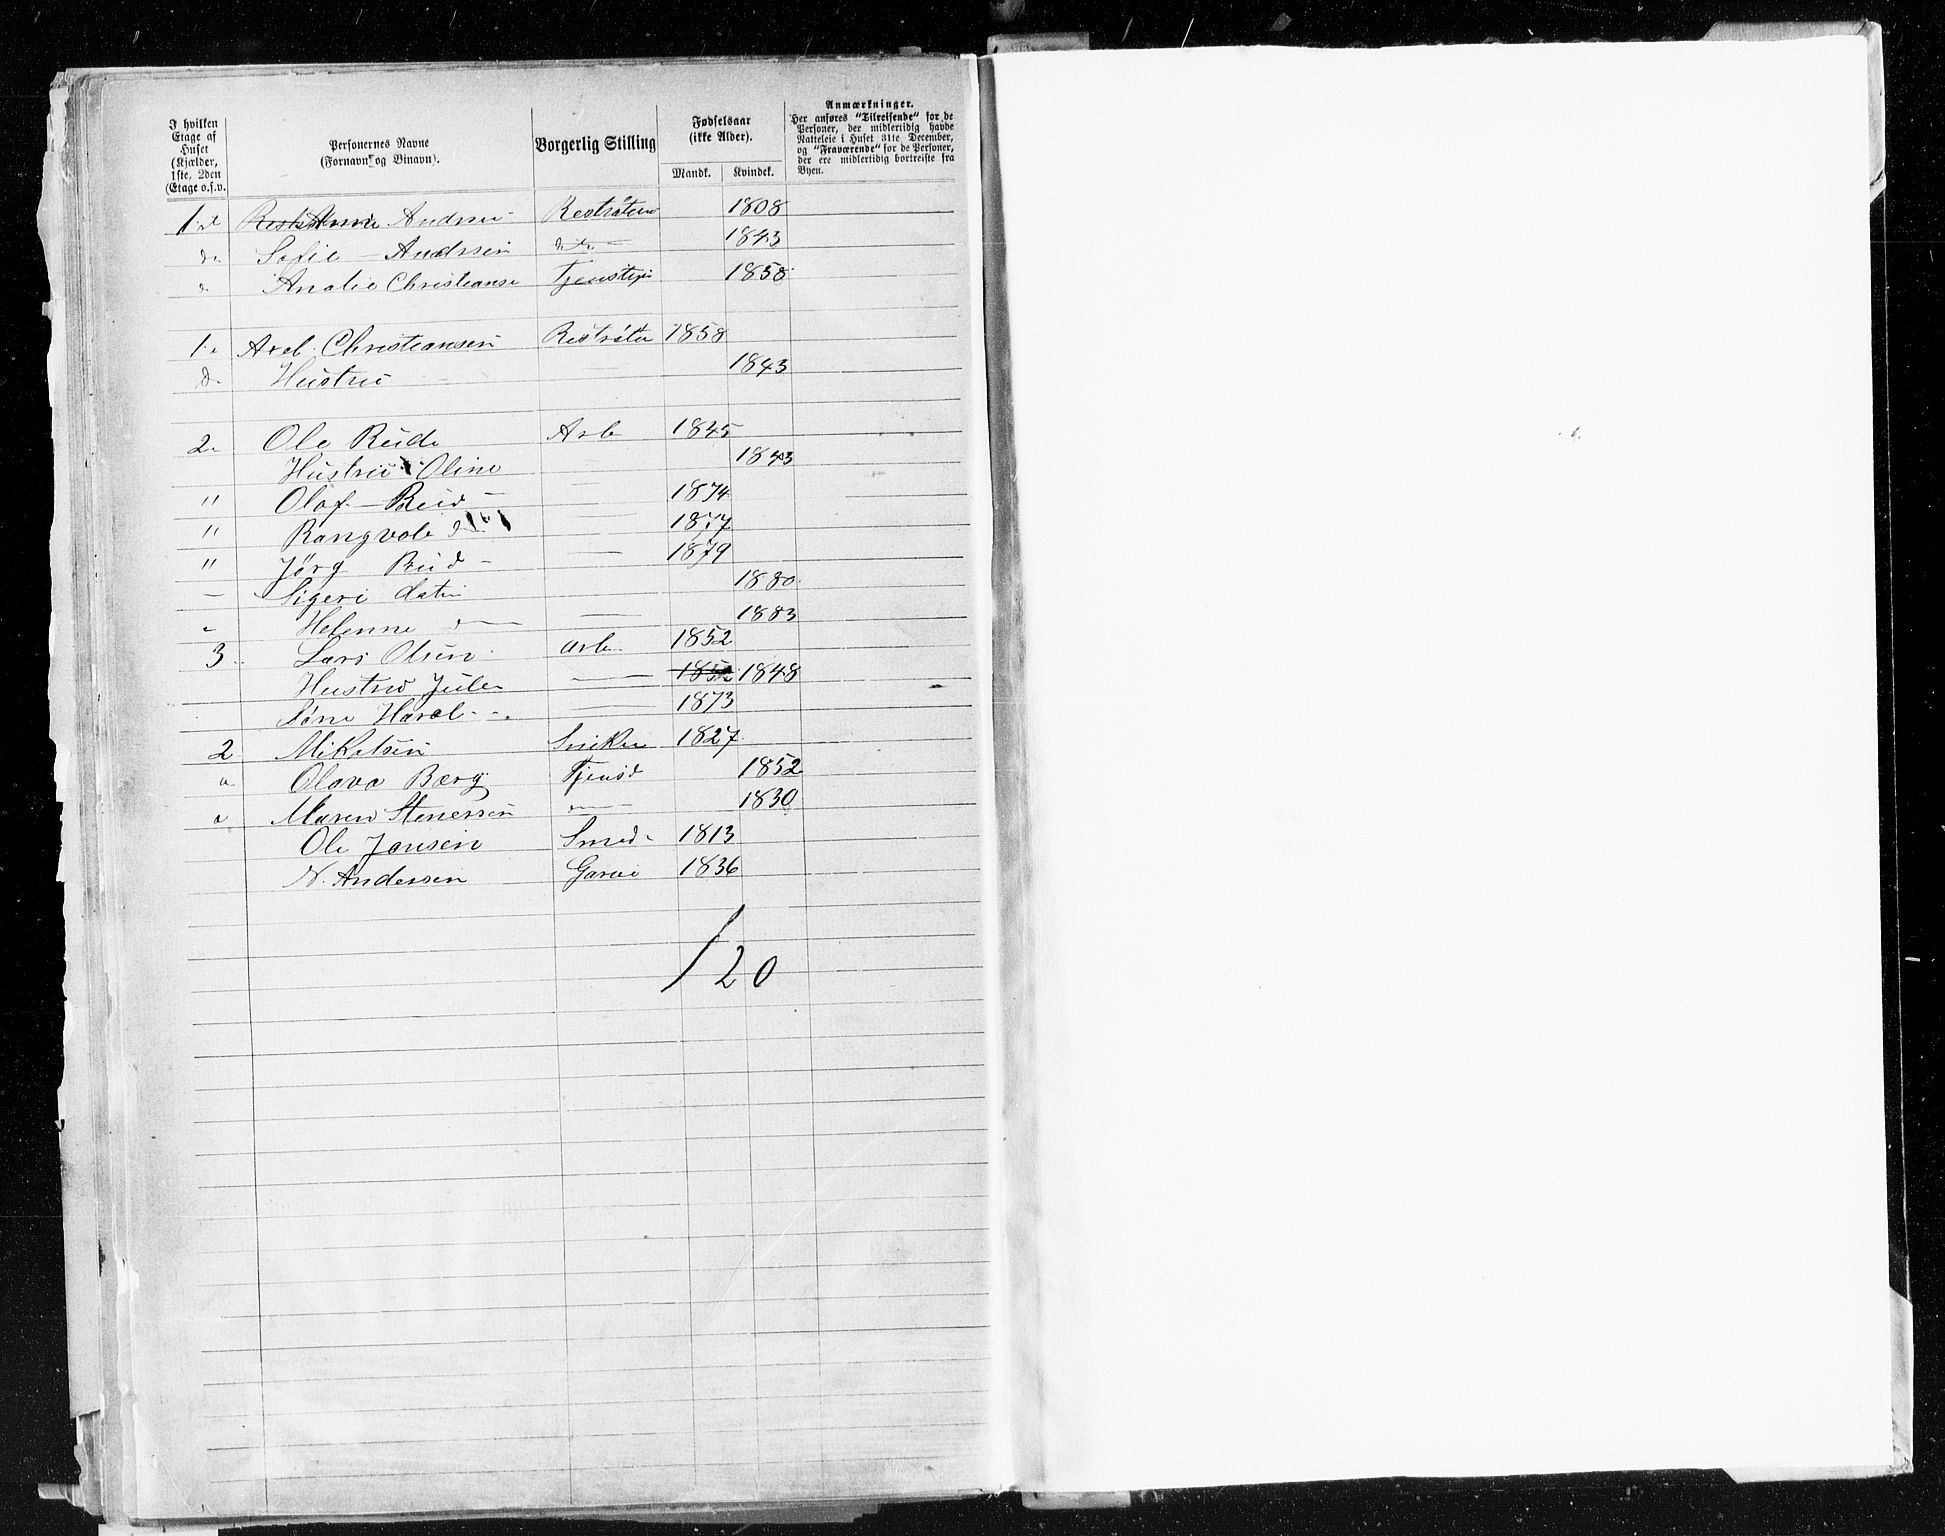 I hvilken Etage af Huset (Kjælder, 1ste, 2den Etage o.s.v.
Personernes Navne (Fornavn og Binavn).
Borgerlig Stilling
Fødselsaar (ikke Alder).
Mandk. Kvindek.
Anmærkninger.
Her anføres "Tilreisende" for de Personer, der midlertidig havde Natteleie i Huset 31te December, og "Fraværende" for de Personer, der ere midlertidig bortreiste fra Byen.
1st Andrsen 1808
do Sofie Andrsen do 1843
d Christianse 1858
1. Axel Christiansen 1858
d. Hustru 1843
2. Ole Rud Arb 1845
Hustru Oline 1843
" Olaf Rud 1874
" Rangvol d 1877
" Jørg Rud 1879
Sigeri 1880
Helenne 1883
3 Lars Olsen Arb. 1852
Hustru Julie 1852 1848
Søne Haral 1873
2 Mikelsen Sniker 1827
Olava Berg Tjenst 1852
Maren Stenersen 1830
Ole Jansen Smed 1813
N. Andersen Garver 1836
/20